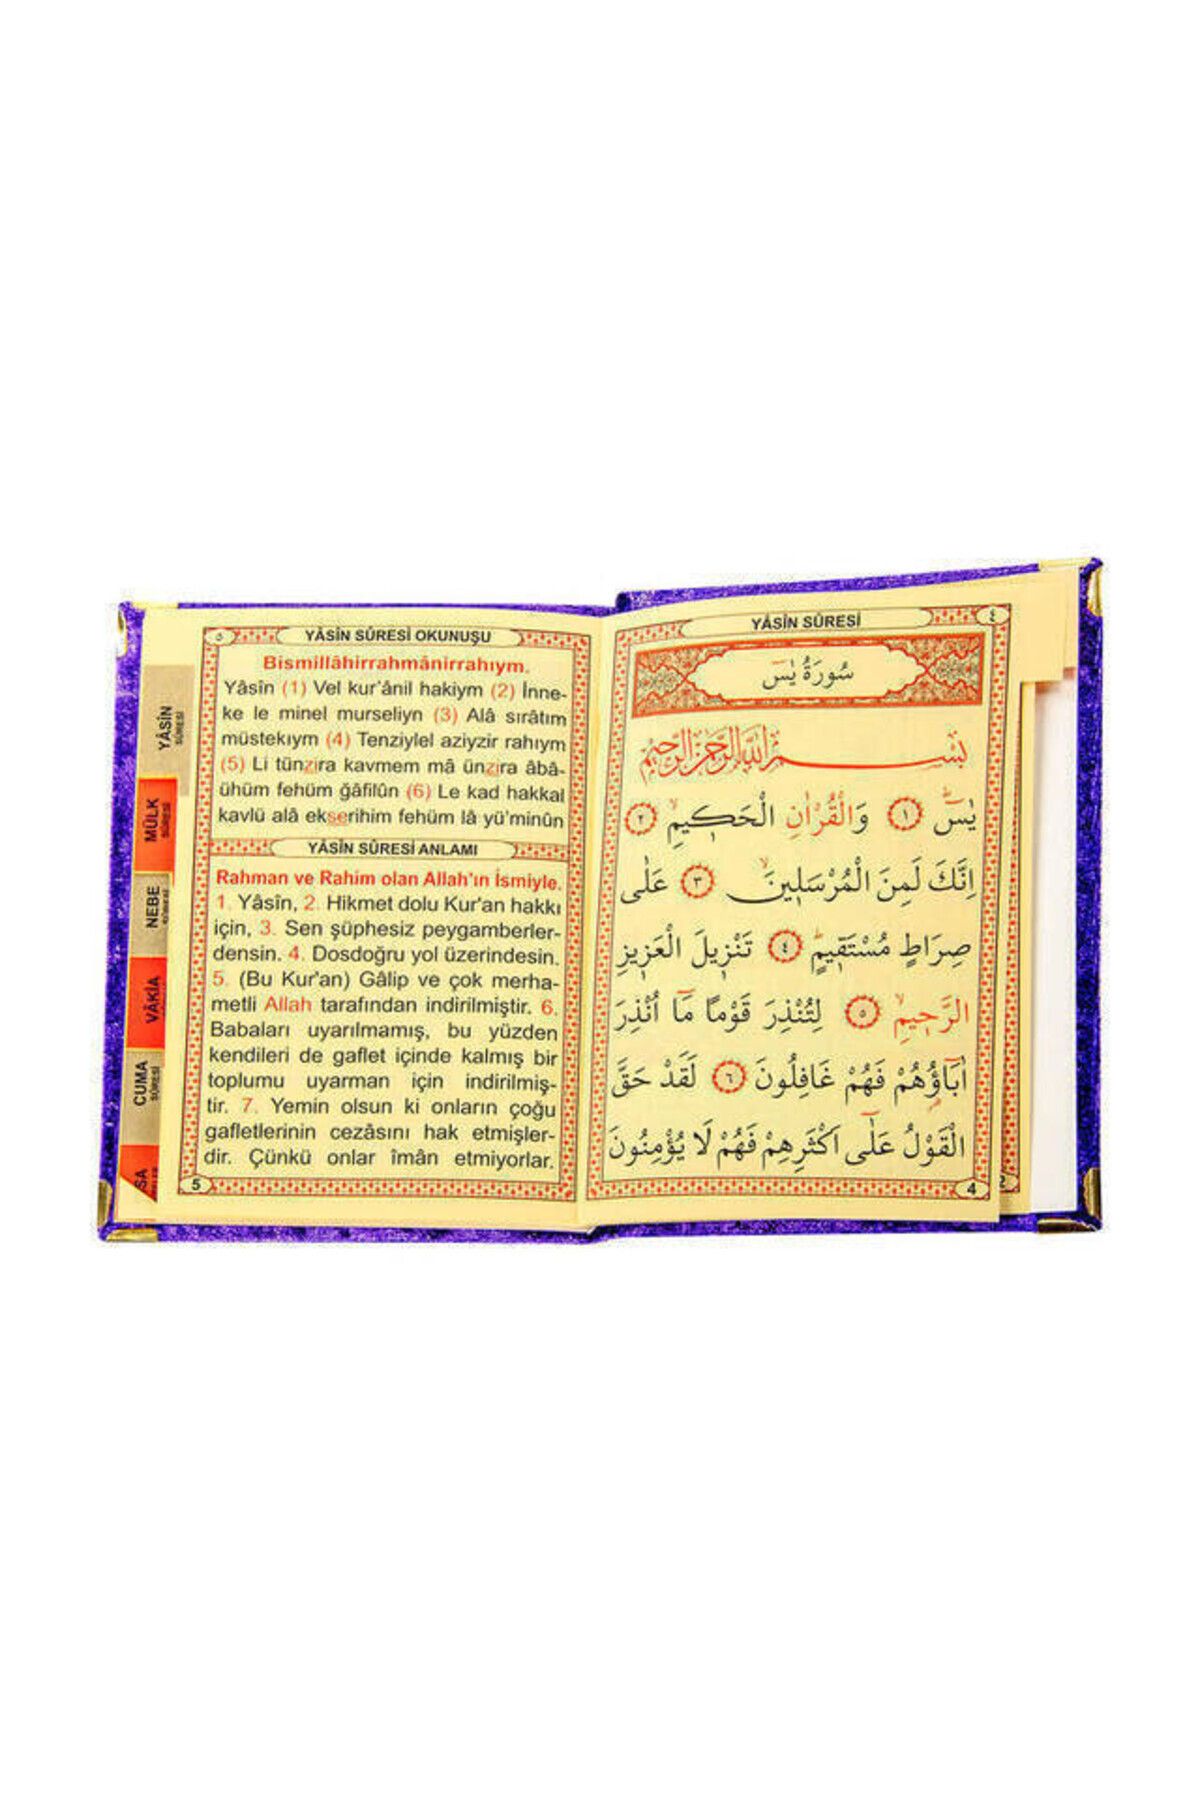 YÂSİN SÛRESİ
MÜLK SÛRESİ
NEBE
VÂKİA
CUMA SÛRESİ
٥
YÂSÎN SÛRESİ OKUNUŞU
Bismillâhirrahmânirrahıym.
Yâsîn (1) Vel kur'ânil hakiym (2) İnne-
ke le minel murseliyn (3) Alâ sırâtım
müstekıym (4) Tenziylel aziyzir rahıym
(5) Li tünzira kavmem mâ ünzira âbâ-
ühüm fehüm ğâfilûn (6) Le kad hakkal
kavlü alâ ekserihim fehüm lâ yü'minûn
YÂSÎN SÛRESİ ANLAMI
Rahman ve Rahim olan Allah'ın İsmiyle.
1. Yâsîn, 2. Hikmet dolu Kur'an hakkı
için, 3. Sen şüphesiz peygamberler-
densin. 4. Dosdoğru yol üzerindesin.
5. (Bu Kur'an) Gâlip ve çok merha-
metli Allah tarafından indirilmiştir. 6.
Babaları uyarılmamış, bu yüzden
kendileri de gaflet içinde kalmış bir
toplumu uyarman için indirilmiş-
tir. 7. Yemin olsun ki onların çoğu
gafletlerinin cezâsını hak etmişler-
dir. Çünkü onlar îmân etmiyorlar.
5
YÂSÎN SÛRESİ
٤
سُورَةُ يٰسٓ
بِسْمِ اللّٰهِ الرَّحْمٰنِ الرَّحِيمِ
يٰسٓ ۚ ﴿١﴾ وَالْقُرْاٰنِ الْحَكِيمِۙ ﴿٢﴾
اِنَّكَ لَمِنَ الْمُرْسَلِينَۙ ﴿٣﴾ عَلٰى
صِرَاطٍ مُسْتَقِيمٍؕ ﴿٤﴾ تَنْزِيلَ الْعَزِيزِ
الرَّحِيمِۙ ﴿٥﴾ لِتُنْذِرَ قَوْمًا مَٓا اُنْذِرَ
اٰبَٓاؤُ۬هُمْ فَهُمْ غَافِلُونَ ﴿٦﴾ لَقَدْ حَقَّ
الْقَوْلُ عَلٰٓى اَكْثَرِهِمْ فَهُمْ لَا يُؤْمِنُونَ
4
2